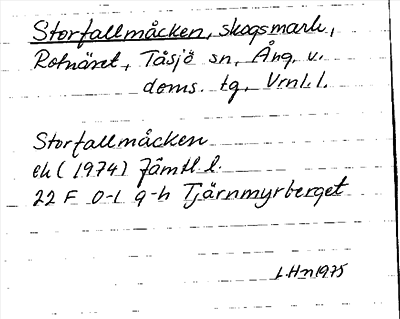 Storfallmåcken, skogsmark,
Rotnäset, Tåsjö sn, Ång. v.
doms. tg, Vrnl. l.
Storfallmåcken
ek (1974) Jämtl. l.
22 F 0-1 g-h Tjärnmyrberget
L.Hn 1975